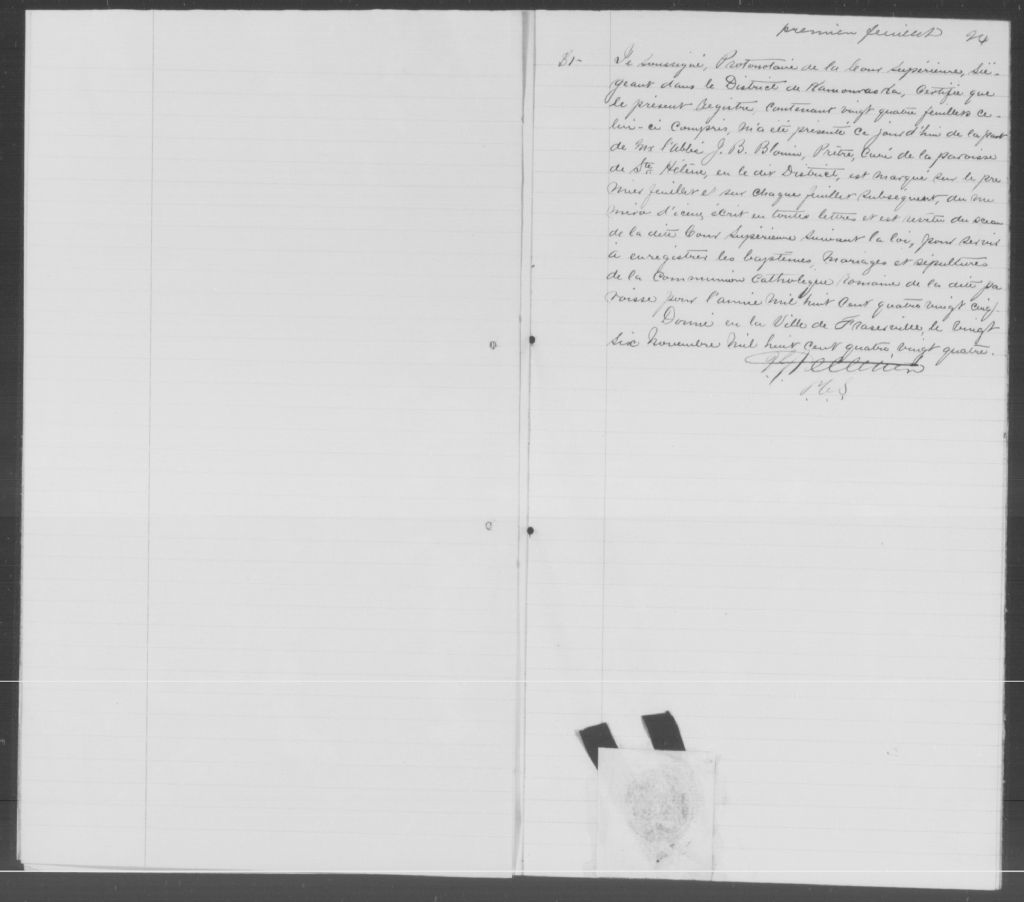 premier feuillet 24
Je soussigné, Protonotaire de la Cour Supérieure, Sié-
geant dans le District de Kamouraska, Certifie que
le présent Registre, contenant vingt quatre feuillets ce-
lui-ci compris, m'a été présenté ce jourd'hui de la part
de Mr l'Abbé J. B. Blouin, Prêtre, Curé de la paroisse
de Ste Hélène, en le dit District, est marqué sur le pre
mier feuillet et sur chaque feuillet subséquent, du nu
méro d'iceux écrit en toutes lettres et est revêtu du sceau
de la dite Cour Supérieure suivant la loi, pour servir
à enregistrer les baptêmes, Mariages et sépultures
de la Communion Catholique romaine de la dite pa
roisse pour l'année mil huit cent quatre vingt cinq.
Donné en la Ville de Fraserville, le vingt
six Novembre mil huit cent quatre vingt quatre.
Pelletier
P.C.S.